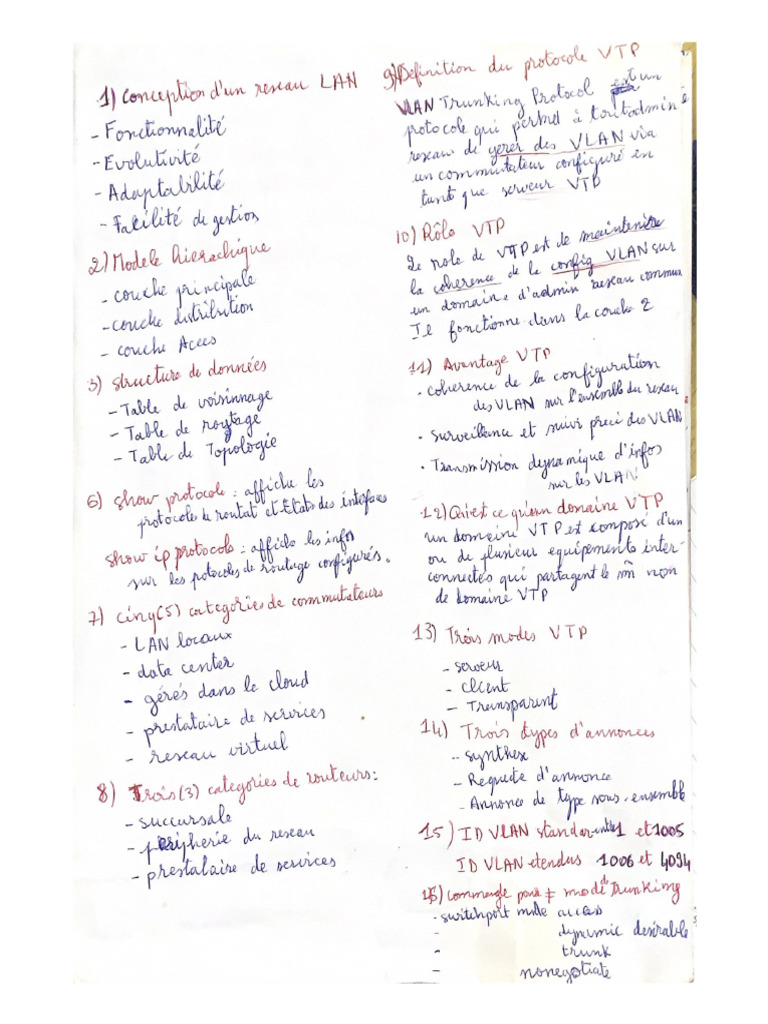 1) Conception d'un reseau LAN
- Fonctionnalité
- Evolutivité
- Adaptabilité
- Facilité de gestion
2) Modele hierachique
- couche principale
- couche distribution
- couche Acces
3) structure de données
- Table de voisinnage
- Table de routage
- Table de Topologie
6) show protocole : affiche les
protocoles de routat et Etats des interfaces
show ip protocole : affiche les infos
sur les potocoles de routage configurés.
7) cinq (5) categories de commutateurs
- LAN locaux
- data center
- gérés dans le cloud
- prestataire de services
- reseau virtuel
8) Trois (3) categories de routeurs :
- succursale
- peripherie du reseau
- prestataire de services
9) Definition du protocole VTP
VLAN Trunking Protocol est un
protocole qui permet à tout admin
reseau de gerer des VLAN via
un commutateur configuré en
tant que serveur VTP
10) Rôle VTP
Le role de VTP est de maintenire
la coherence de la config VLAN sur
un domaine d'admin reseau commun
Il fonctionne dans la couche 2
11) Avantage VTP
- coherence de la configuration
des VLAN sur l'ensemble du reseau
- Surveillance et suivi preci des VLAN
- Transmission dynamique d'infos
sur les VLAN
12) Qu'est ce qu'un domaine VTP
un domaine VTP est composé d'un
ou de plusieur equipements inter-
connectés qui partagent le mm non
de domaine VTP
13) Trois modes VTP
- serveur
- client
- Transparent
14) Trois types d'annonces
- synthese
- Requete d'annonce
- Annonce de type sous-ensemble
15) ID VLAN standar entre 1 et 1005
ID VLAN etendus 1006 et 4094
16) commande pour ≠ mode de Trunking
- switchport mode access
- dynamic desirable
- trunk
- nonegotiate